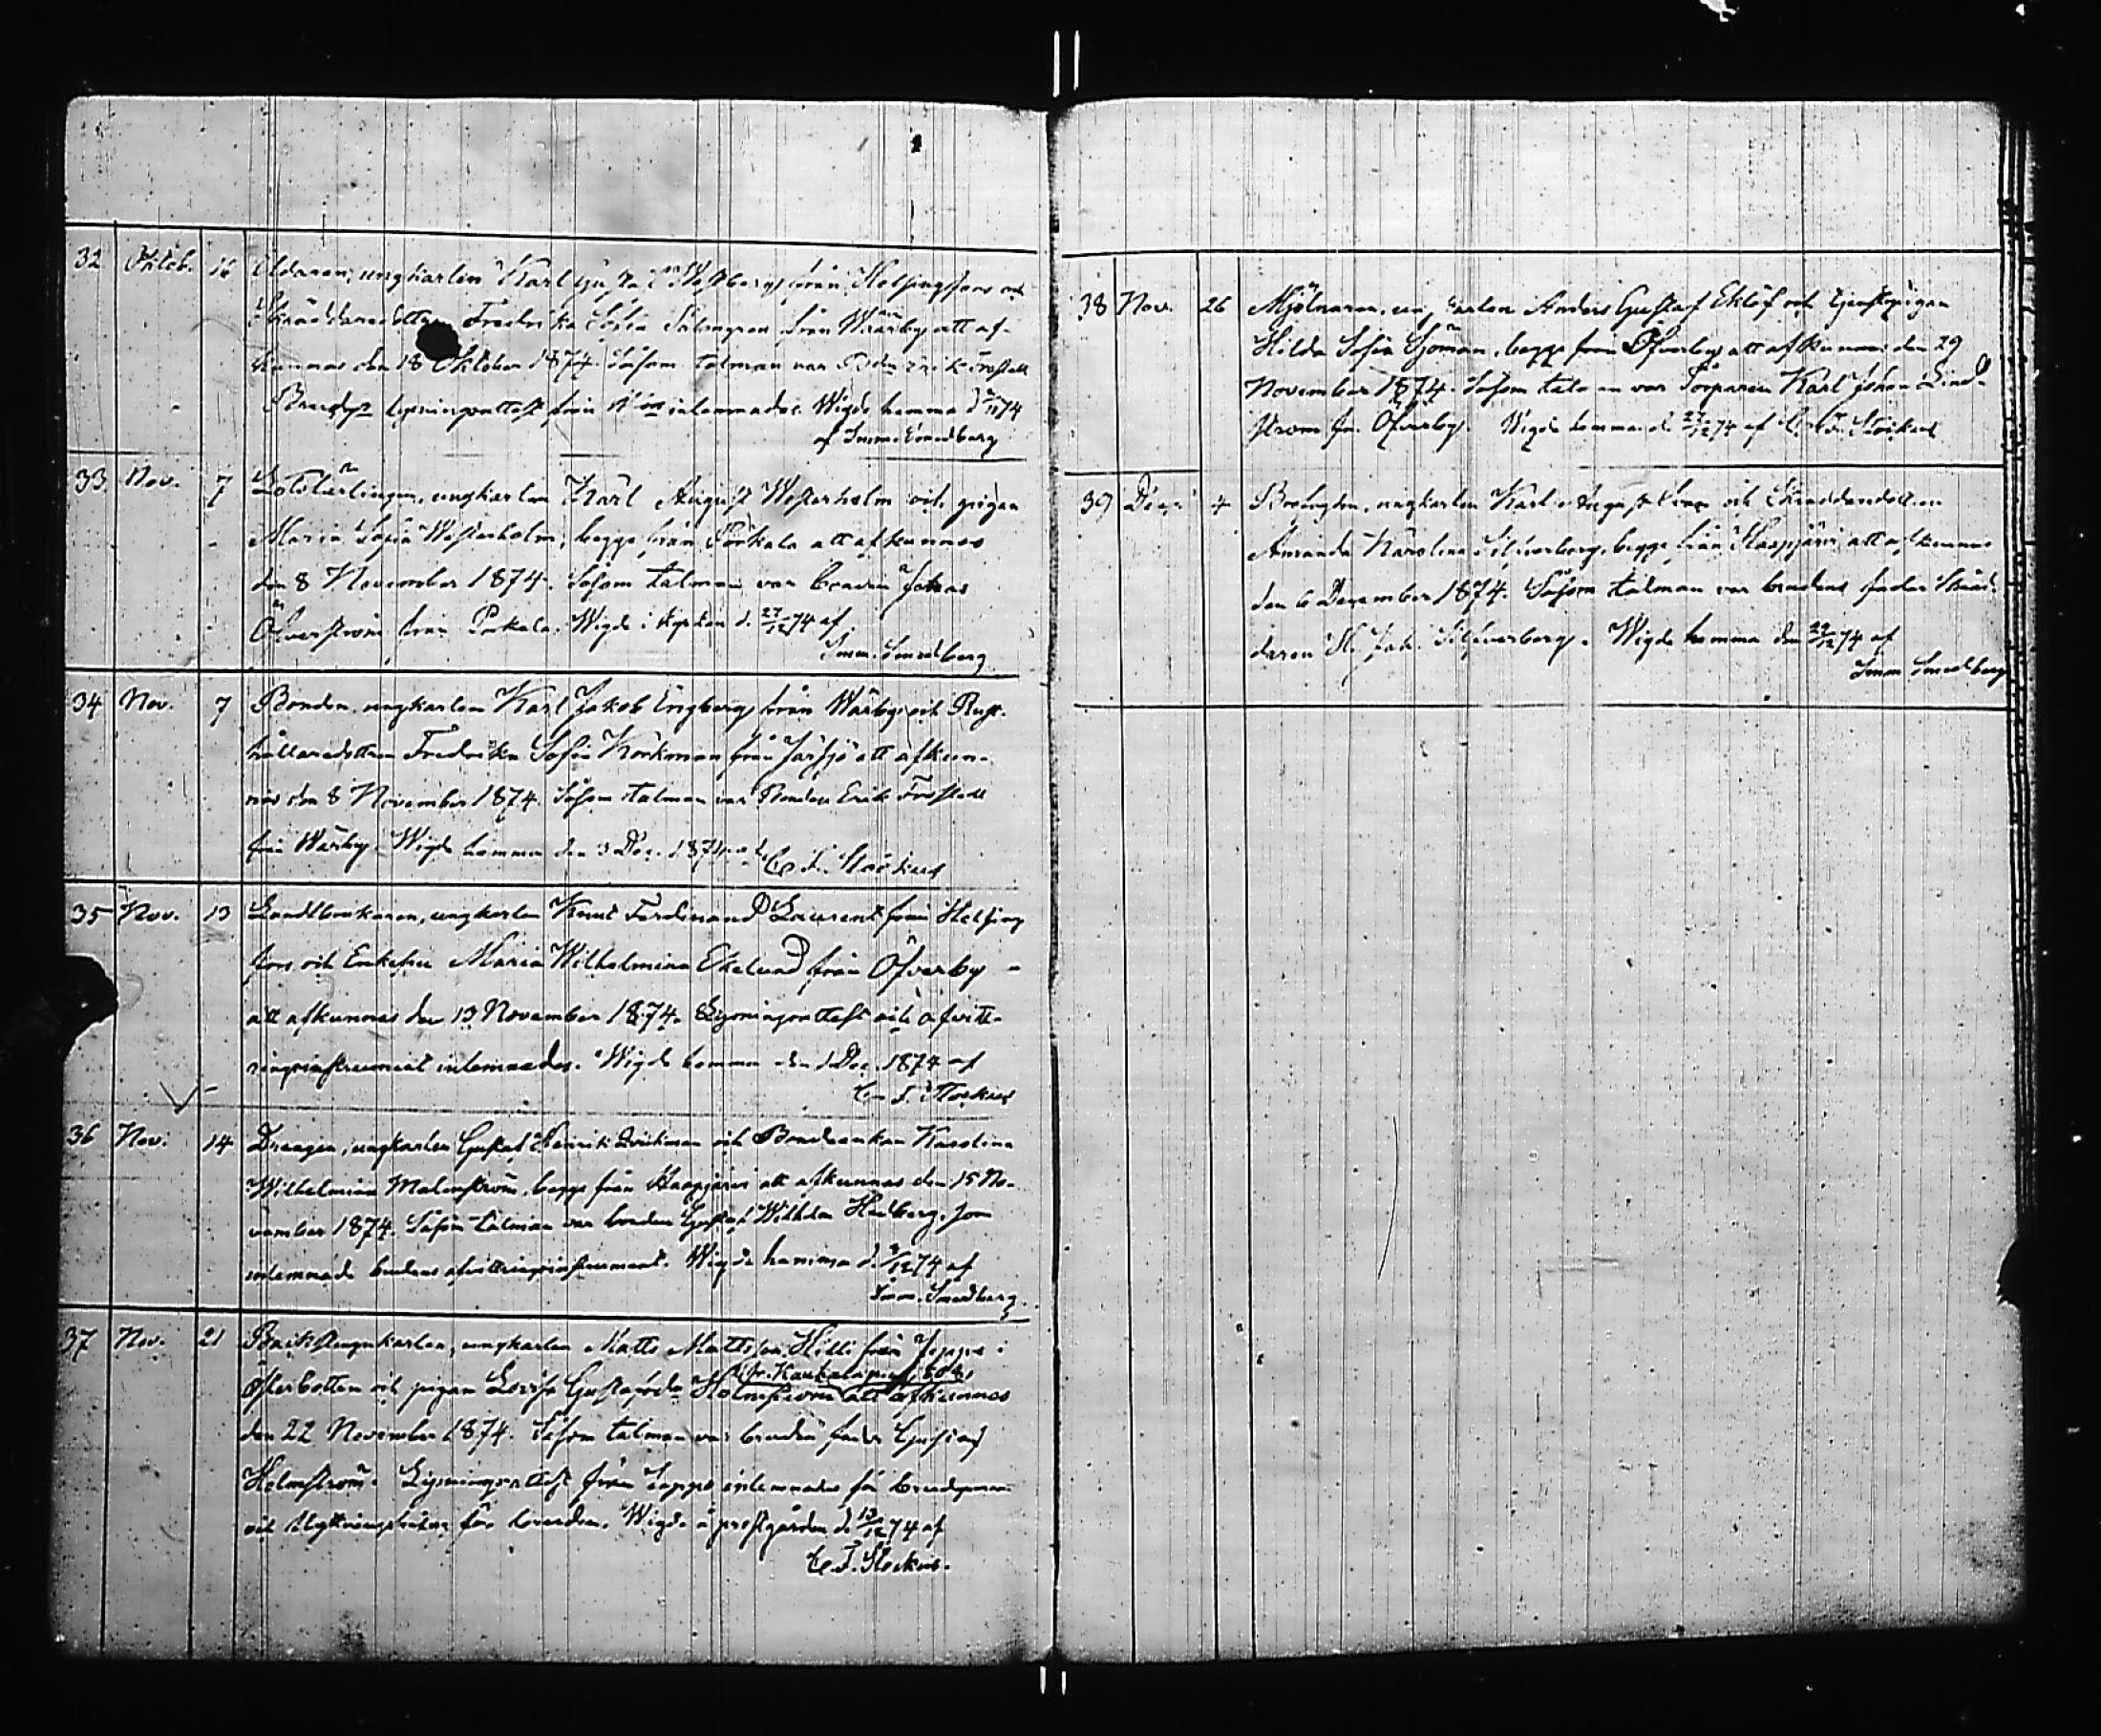 32 Oktob. 16 Eldaren, ungkarlen Karl Gustaf Westberg från Helsingfors och
Skräddaredottren Fredrika Sofia Palmgren från Wärby att af-
kunnas den 18 Oktober 1874. Såsom talman var Bonden Erik Frostell
lysningsattest från inlemnades. Wigde hemma d. 74
af Imm. Smedberg
33 Nov. 7 Lotslärlingen, ungkarlen Karl August Westerholm och pigan
Maria Sofia Westerholm, begge från Porkala att afkunnas
den 8 November 1874. Såsom talman var
Öfverström från Porkala. Wigde i kyrkan d. 27/12 74 af
Imm. Smedberg
34 Nov. 7 Bonden, ungkarlen Karl Jakob Engberg från Wärby och Rust-
hållaredottren Fredrika Sofia Korkman från att afkun-
nas den 8 November 1874. Såsom talman var Bonden Erik Frostell
från Wärby. Wigde hemma den 3 Dec. 1874 af C. F. Stockus
35 Nov. 13 Landtbrukaren, ungkarlen Knut Ferdinand Laurent från Helsing
fors och Enkefru Maria Wilhelmina Ekelund från Öfverby
att afkunnas den 13 November 1874. Lysningsattest och afvitt-
ringsinstrument inlemnades. Wigde hemma den 1 Dec. 1874 af
C. F. Stockus
36 Nov. 14 Drängen, ungkarlen Gustaf Henrik och Bondeenkan Karolina
Wilhelmina Malmström, begge från Haapjärvi att afkunnas den 15 No-
vember 1874. Såsom talman var bonden Gustaf Wilhelm Hedberg, som
inlemnade brudens afvittringsinstrument. Wigde hemma d. /12 74 af
Imm. Smedberg.
37 Nov. 21 ungkarlen Matts Mattsson Hilli från Jeppo i
Österbotten och pigan Lovisa Gustafsdr Holmström att afkunnas
den 22 November 1874. Såsom talman var brudens fader Gustaf
Holmström. Lysningsattest från Jeppo inlemnades för brudgummen
och flyttningsbetyg för bruden. Wigde å prestgården d. 13/12 74 af
C. F. Stockus.
38 Nov. 26 Mjölnaren, ungkarlen Anders Gustaf Eklöf och tjenstepigan
Hilda Sofia Sjöman, begge från Öfverby att afkunnas den 29
November 1874. Såsom talman var Torparen Karl Johan Lind-
ström fr. Öfverby. Wigde hemma d. 27/12 74 af C. F. Stockus
39 Dec. 4 ungkarlen Karl August och Skräddaredottren
Amanda Karolina Silfverberg, begge från Haapjärvi att afkunnas
den 6 December 1874. Såsom talman var brudens fader Skräd-
daren K. Joh. Silfverberg. Wigde hemma den 29/12 74 af
Imm Smedberg